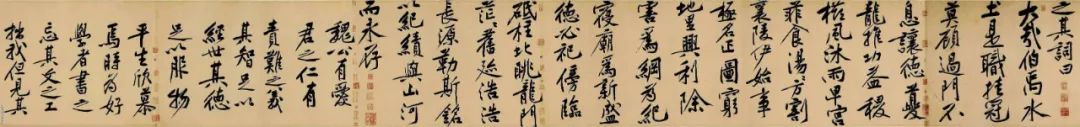 之其詞曰
大哉伯禹水
土是職挂冠
莫顧過門不
息讓德夔
龍推功益稷
櫛風沐雨卑宮
菲食湯〻方割
襄陵伊始事
極名正圖窮
地里興利除
害為綱為紀
寢廟為新盛
德必祀傍臨
砥柱北眺龍門
茫〻舊迹浩浩
長源勒斯銘
以紀績與山河
而永存
魏公有愛
君之仁有
責難之義
其智足以
經世其德
足以服物
平生欣慕
焉時為好
學者書之
忘其文之工
拙我但見其